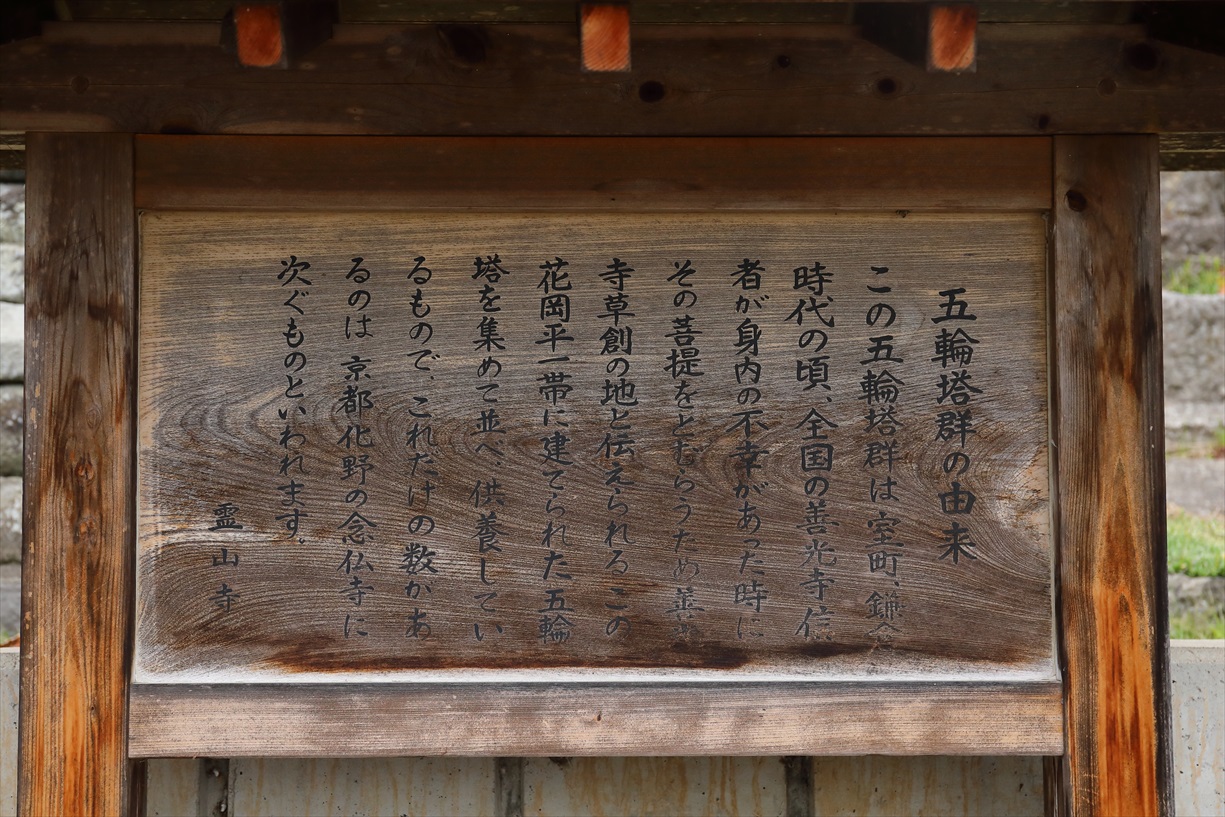 五輪塔群の由来
この五輪塔群は室町、鎌倉
時代の頃、全国の善光寺信
者が身内の不幸があった時に
その菩提をとむらうため善光
寺草創の地と伝えられるこの
花岡平一帯に建てられた五輪
塔を集めて並べ、供養してい
るもので、これだけの数があ
るのは京都化野の念仏寺に
次ぐものといわれます。
霊山寺